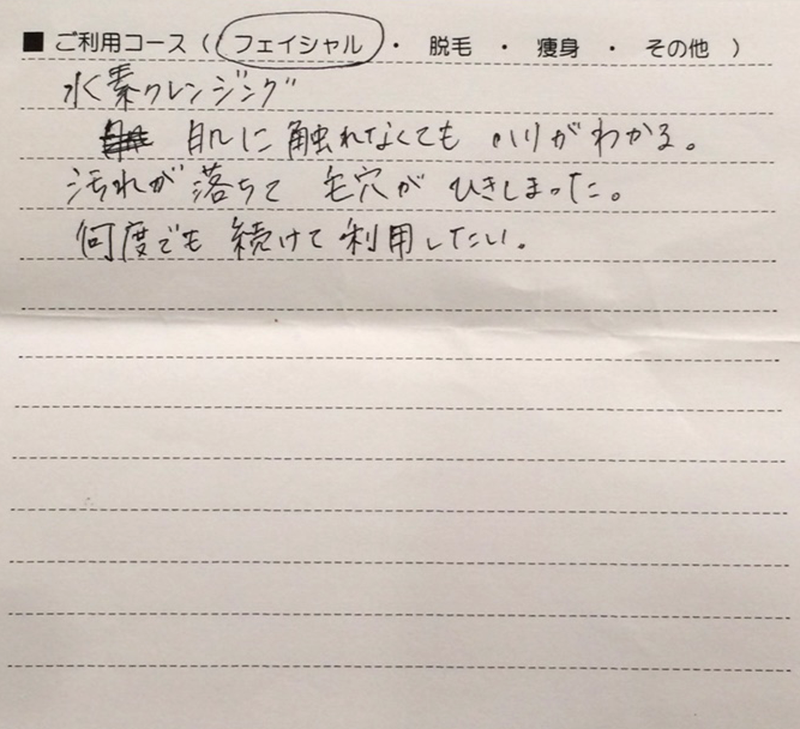 ■ ご利用コース（ フェイシャル ・ 脱毛 ・ 痩身 ・ その他 ）
水素クレンジング
肌に触れなくても ハリがわかる。
汚れが落ちて 毛穴が ひきしまった。
何度でも 続けて利用したい。